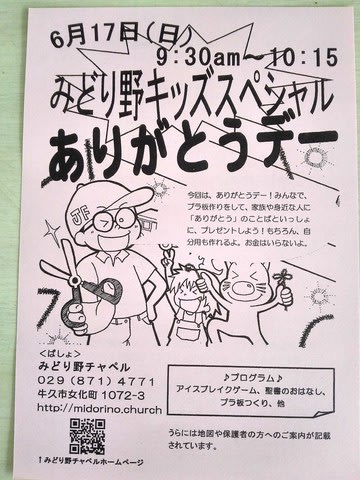 6月17日(日)
9:30am～10:15
みどり野キッズスペシャル
ありがとうデー
今回は、ありがとうデー！みんなで、
プラ板作りをして、家族や身近な人に
「ありがとう」のことばといっしょ
に、プレゼントしよう！もちろん、自
分用も作れるよ。お金はいらないよ。
JF
<ばしょ>
みどり野チャペル
029 (871) 4771
牛久市女化町 1072-3
http://midorino.church
♪プログラム♪
アイスブレイクゲーム、聖書のおはなし、
プラ板つくり、他
↑みどり野チャペルホームページ
うらには地図や保護者の方へのご案内が記載
されています。